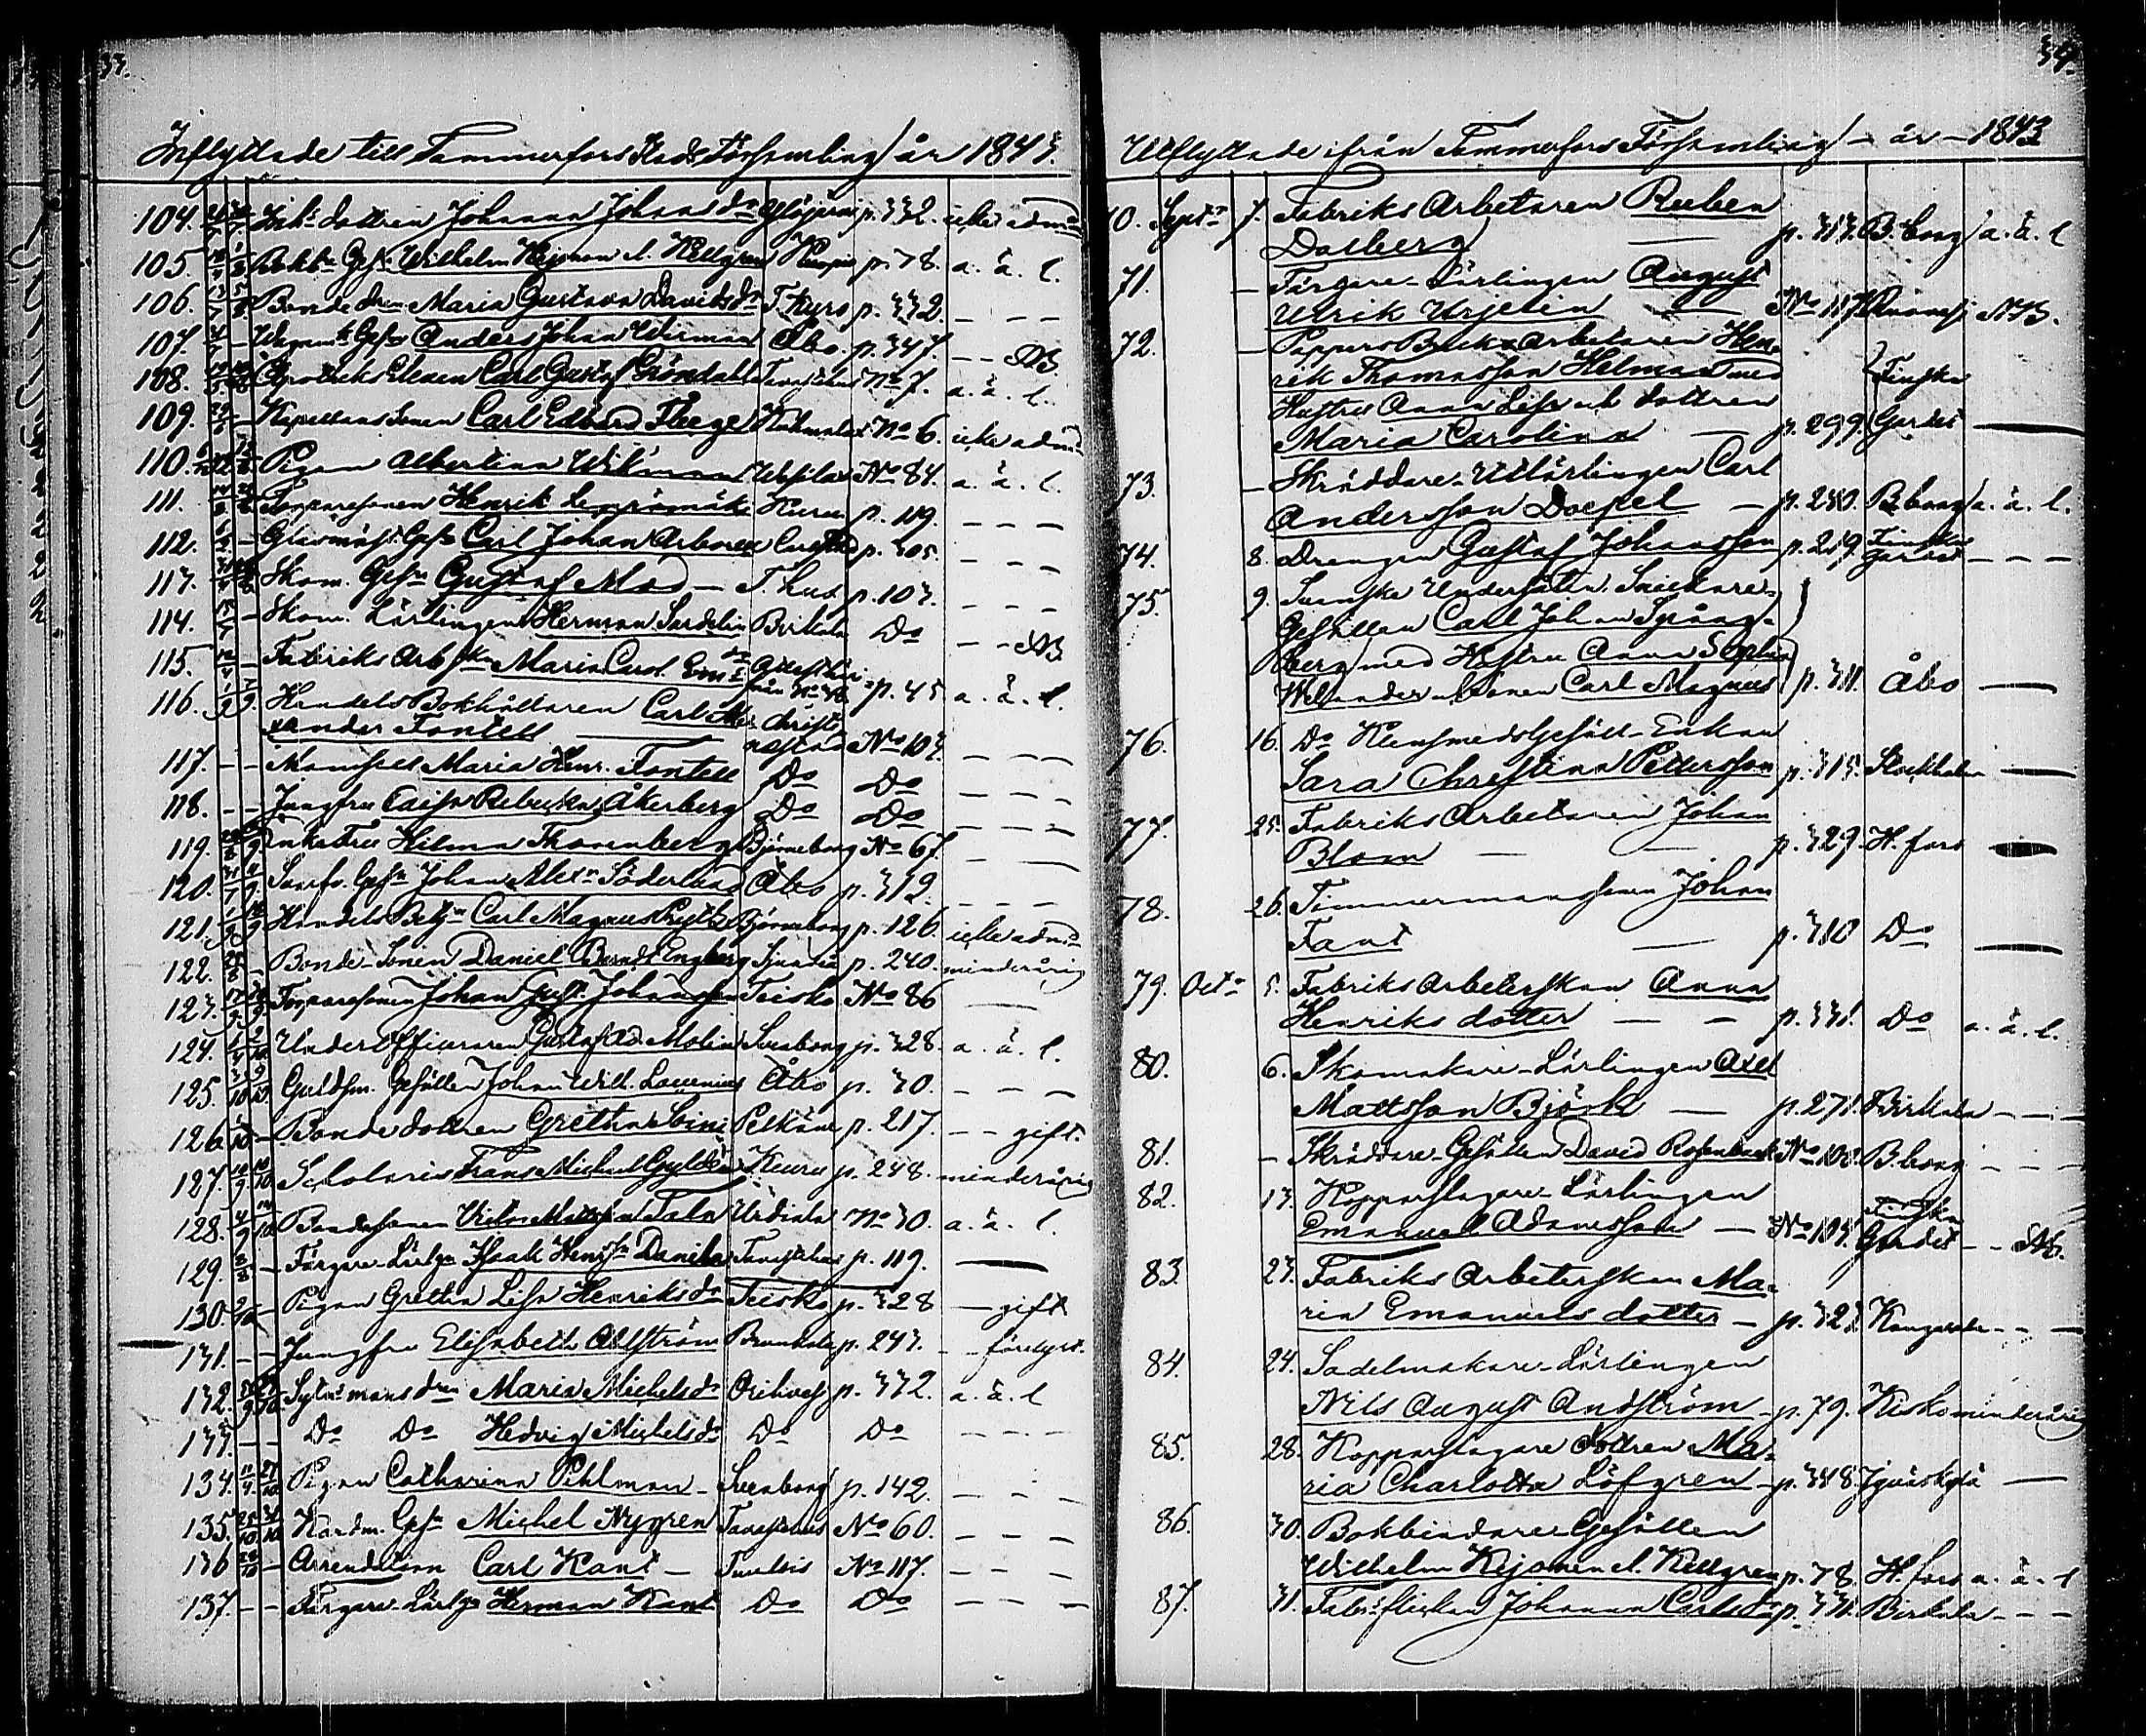 33.
Inflyttade till Tammerfors Stads Församling år 1843.
104. Inh:s dottren Johanna Johans dr p. 332. icke adm:
105. Bokb: Ges: Wilhelm Kejonen l. Kellgren Kuopio p. 78. a. ä. l.
106. Bonde dren Maria Gustava Davids dr T. Kyro p. 332 - - -
107. Ges: Anders Johan Wirman Åbo p. 347. - - NB
108. Apotheks Eleven Carl Gustaf Gröndahl Tavastehus No 7. a. ä. l.
109. Kapellans Sonen Carl Edvard Thege No 6. icke adm:
110. Pigan Albertina Wikman No 84. a. ä. l.
111. Torparesonen Henrik Kuru p. 119. - - -
112. Glasmäst: Ges: Carl Johan Arboren p. 305. - - -
113. Skom. Ges:n Gustaf Mod - T. hus p. 103. - - -
114. Skom. Lärlingen Herman Sardelin Birkala Do - - NB
115. Fabriks Arb:skan Maria Carol. p. 45 a. ä. l.
116. Handels Bokhållaren Carl Alex
ander Fontell Christi
nestad No 103. - - -
117. - - Mamsell Maria Henr. Fontell Do Do - - -
118. - - Jungfru Caisa Rebecka Åkerberg Do Do - - -
119. Enkefru Hilma Thorenberg Björneborg No 67. - -
120. Ges:n Johan Alex:r Söderlund Åbo p. 312. - - -
121. Handels Betj:n Carl Magnus Björneborg p. 126. icke adm:
122. Bonde-Sonen Daniel Berndt Engberg Sjundeå p. 240. minderårig
123. Torparesonen Johan Gust. Johansson Teisko No 86 -
124. Under Officeraren Gustaf Ad. Molin Sveaborg p. 328. a. ä. l.
125. Guldsm. Gesällen Johan Wilh. Lauenius Åbo p. 30. - - -
126. Bonde dottren Gretha Pelkäne p. 217. - - gift.
127. Scholaris Frans Michael Gyldén Kuru p. 248. minderårig
128. Bondesonen Victor Mattsson Tala Urdiala No 30. a. ä. l.
129. Färgare-Lärl:n Isaak Hens:n Danila Tavastehus p. 119. -
130. Pigan Gretha Lisa Henriks dr Teisko p. 328 - gift
131. - - Jungfru Elisabeth Ahlström p. 243. - - förelyst.
132. dren Maria Michels dr Orihvesi p. 332. a. ä. l
133. - - Do Do Hedvig Michels dr Do Do - - -
134. Pigan Catharina Pihlman - Sveaborg p. 142. - - -
135. Kardm. Ges:n Michel Nygren Tavastehus No 60. - - -
136 Arrendatorn Carl Kant - Tuulois No 117. - - -
137. - - Färgare-Lärl:n Herman Kant Do Do - - -
34.
Utflyttade ifrån Tammerfors Församling - år - 1843
70. Sept:r 7. Fabriks Arbetaren Ruben
Dalberg - p. 313. B. borg a. ä. l
71. - Färgare-Lärlingen August
Ulrik Urjelin - No 117. NB.
72. - Pappers Bruks Arbetaren Hen-
rik Thomasson Helman med
Hustru Anna Lisa och dottren Finska
Maria Carolina - p. 299. Gardet -
73. - Skräddare-Utlärlingen Carl
Andersson Doepel - p. 280. B. borg a. ä. l.
74. 8. Drengen Gustaf Johansson p. 219. Finska Gardet - - -
75. 9. Svenska Undersåten, Snickare-
Gesällen Carl Johan Spång-
berg med Hustru Anna Sophia
Welander och Sonen Carl Magnus p. 311. Åbo -
76. 16. Do Klensmeds Gesäll-Enkan
Sara Christina Pettersson p. 315. Stockholm -
77. 25. Fabriks Arbetaren Johan
Blom - - p. 329. H. fors -
78. 26. Timmermanssonen Johan
Fant - p. 310 Do -
79. Oct:r 5. Fabriks Arbeterskan Anna
Henriks dotter - - p. 331. Do a. ä. l.
80. 6. Skomakare-Lärlingen Axel
Mattsson Björk - p. 271. Birkala - - -
81. - Skräddare-Gesällen David Rosenback No 100. B. borg - - -
82. 13. Kopparslagare-Lärlingen Finska
Emanuel Adamsson - No 104. Gardet - - NB.
83. 23. Fabriks Arbeterskan Ma-
ria Emanuels dotter - p. 323 Kangasala - - -
84. 24. Sadelmakare-Lärlingen
Nils August Andström - p. 79. Kisko minderårig
85. 28. Kopparslagare dottren Ma-
ria Charlotta Löfgren - p. 348. Jyväskylä -
86. 30. Bokbindare Gesällen
Wilhelm Kejonen l. Kellgren p. 78. H. fors a. ä. l
87. 31. Fabr:sflickan Johanna Carls dr p. 331. Birkala - - -